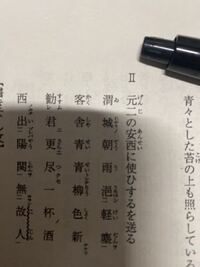 青々とした苔の上も照らしている
Ⅱ 元二の安西に使ひするを送る
渭城朝雨浥軽塵
客舎青青柳色新
勧君更尽一杯酒
西出陽関無故人